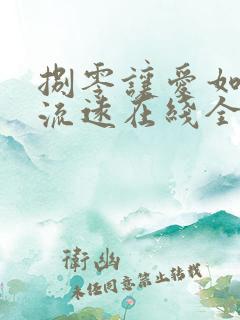 捌零讓愛如
流速在綫全
衛幽
未任同意禁止转载